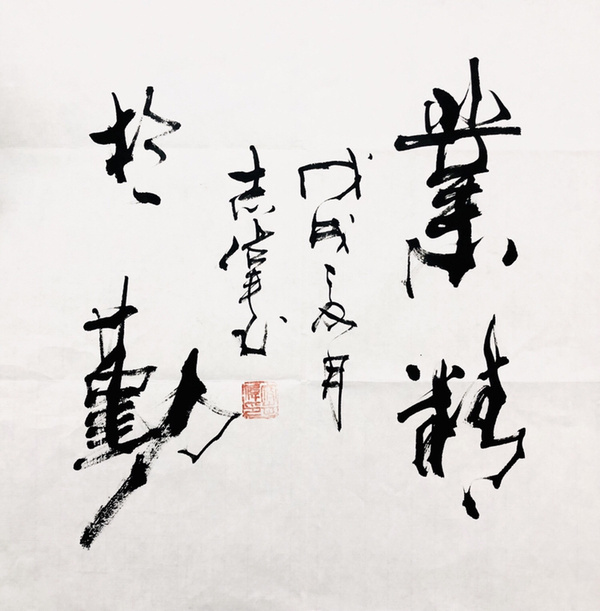 業精
於勤
戊戌夏月
志偉书